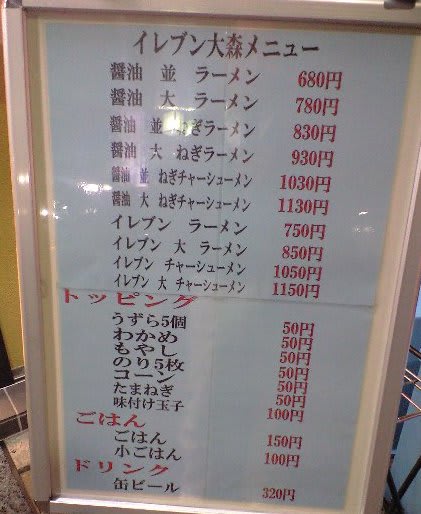 イレブン大森メニュー
醤油 並 ラーメン 680円
醤油 大 ラーメン 780円
醤油 並 ねぎラーメン 830円
醤油 大 ねぎラーメン 930円
醤油 並 ねぎチャーシューメン 1030円
醤油 大 ねぎチャーシューメン 1130円
イレブン ラーメン 750円
イレブン 大 ラーメン 850円
イレブン チャーシューメン 1050円
イレブン 大 チャーシューメン 1150円
トッピング
うずら5個 50円
わかめ 50円
もやし 50円
のり5枚 50円
コーン 50円
たまねぎ 50円
味付け玉子 100円
ごはん
ごはん 150円
小ごはん 100円
ドリンク
缶ビール 320円